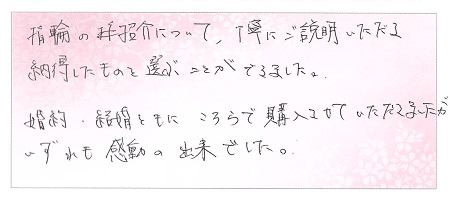 指輪の詳紹介について、丁寧にご説明いただき
納得したものを選ぶことができました。
婚約・結婚ともにこちらで購入させていただきましたが
いずれも感動の出来でした。